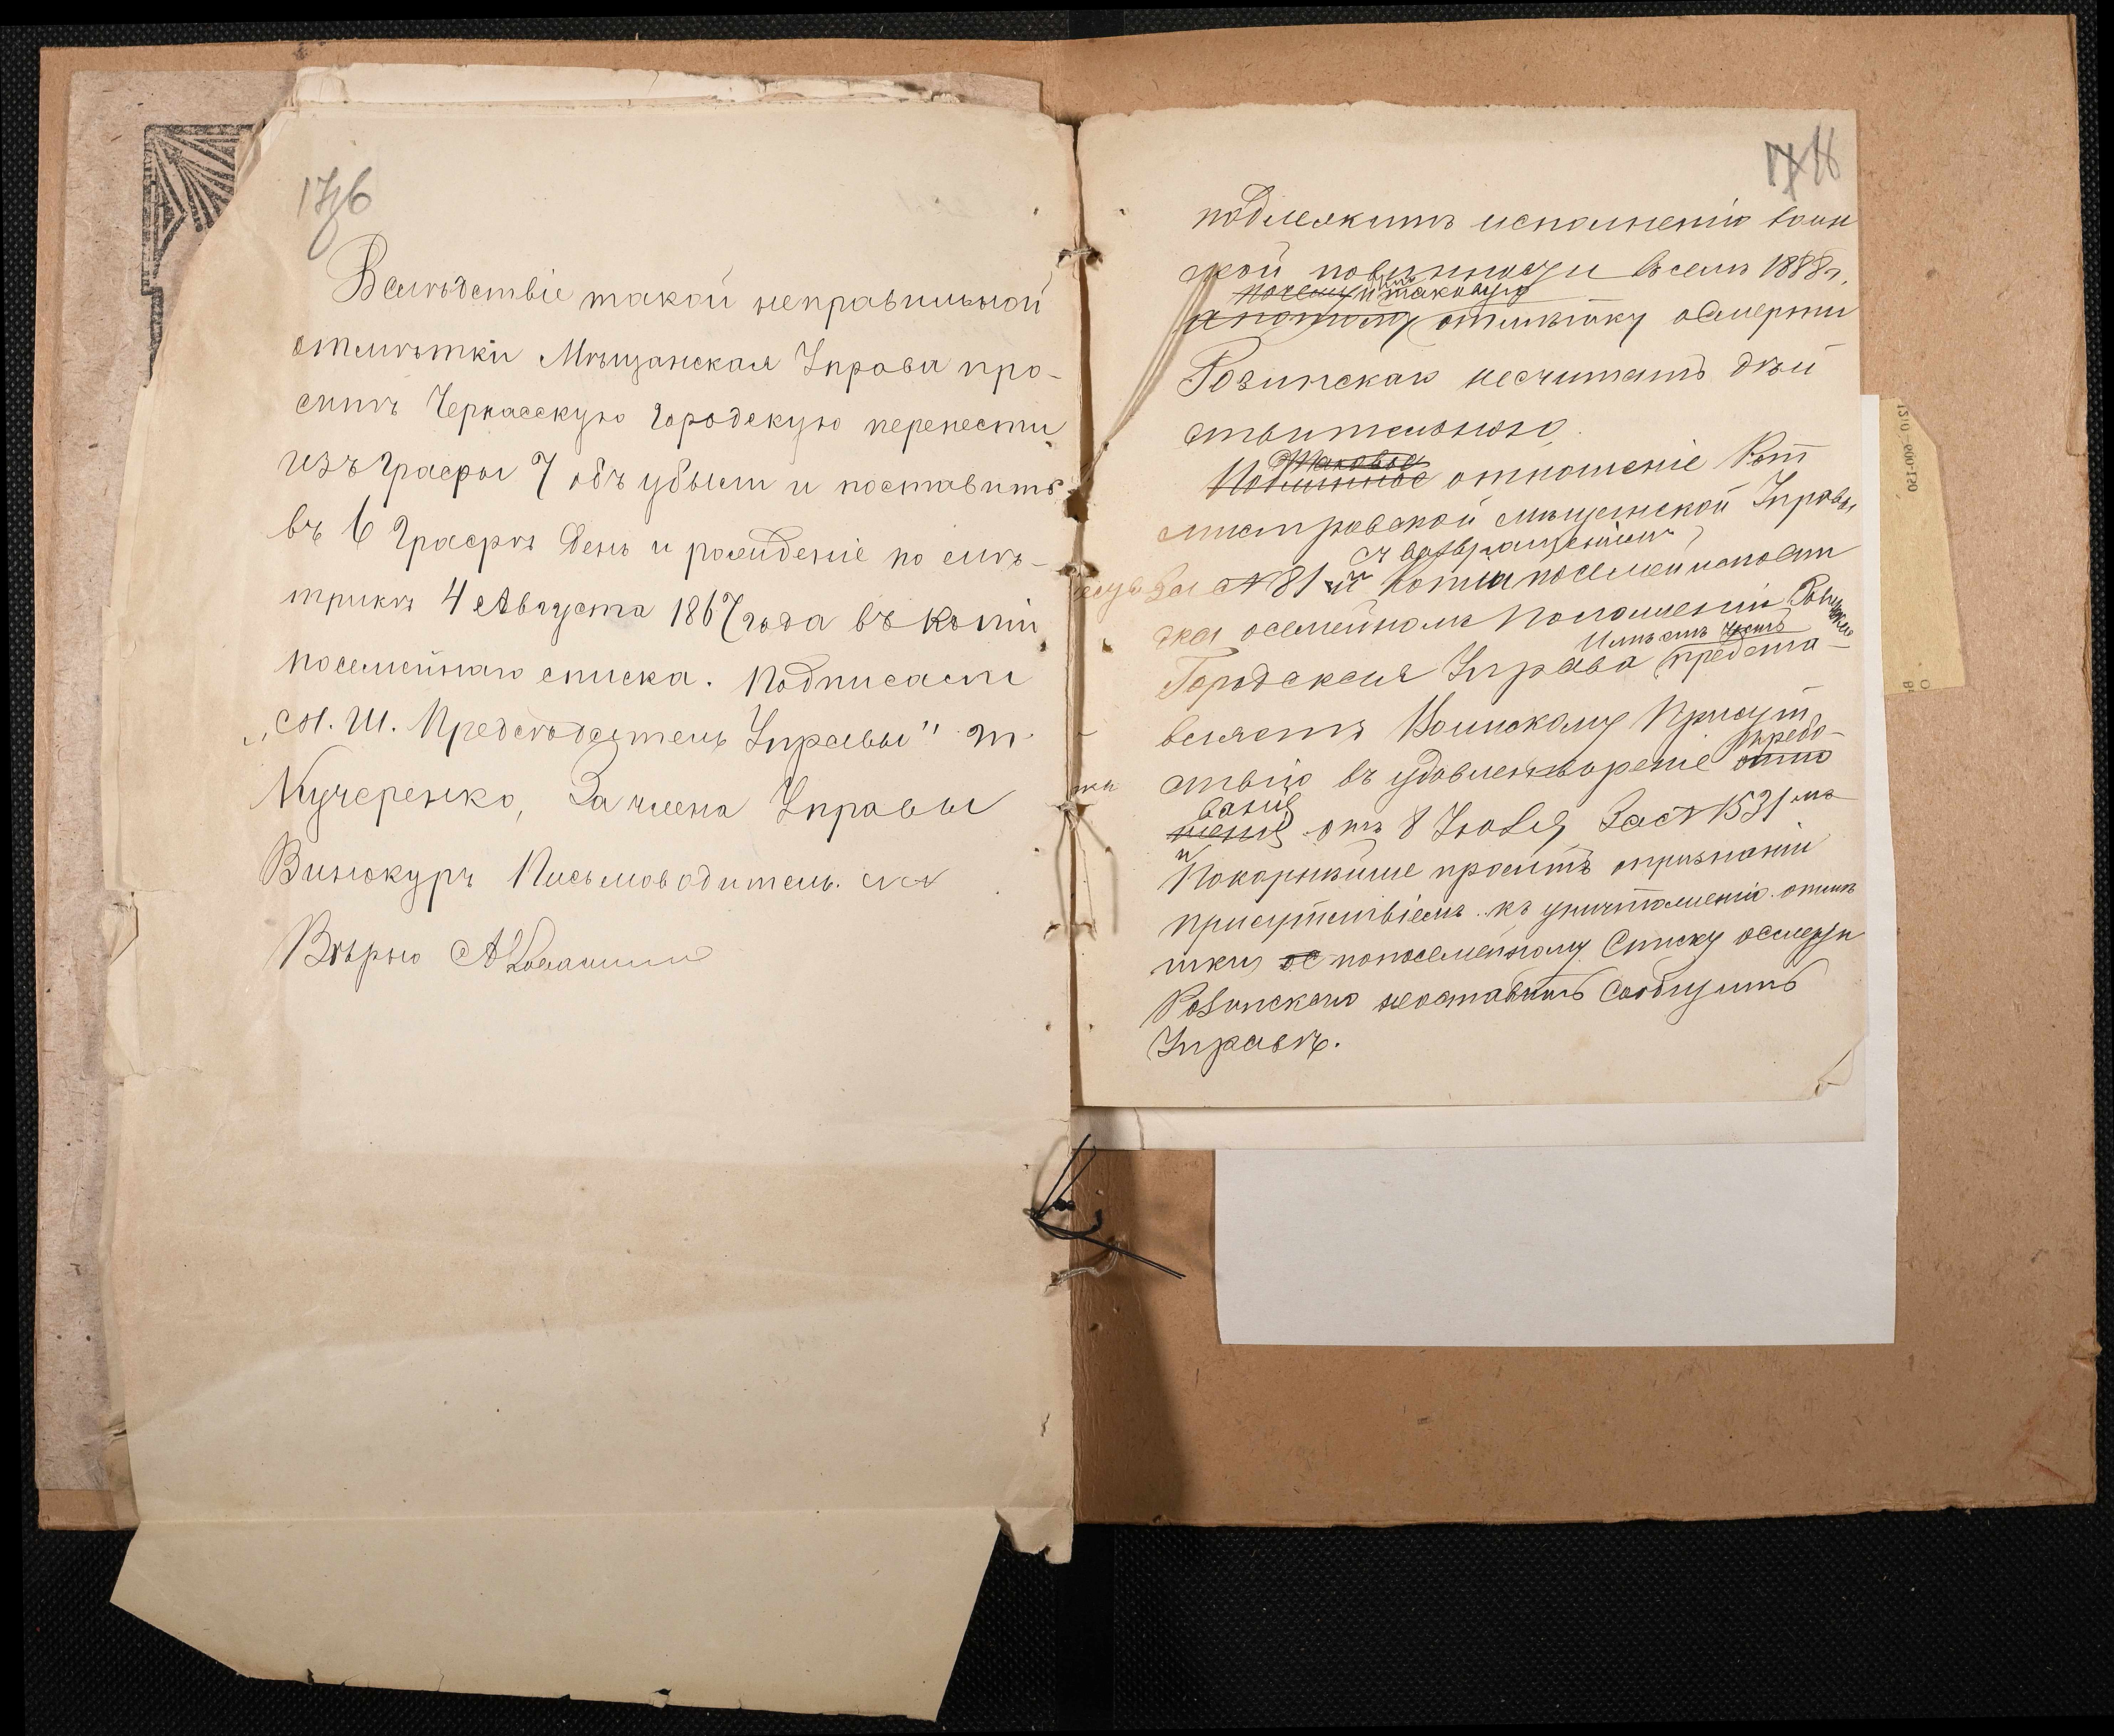 17 зв
Вслѣдствіе такой неправильной
отмѣтки Мѣщанская Управа про-
ситъ Черкасскую Городскую перенести
изъ графы 7 объ убыли и поставить
въ 6 графѣ день и рожденіе по ме-
трикѣ 4 Августа 1867 года въ копіи
посемейнаго списка. Подписали
„М. Ш. Предсѣдатель Управы" М.
Кучеренко, За члена Управы
Винокуръ Письмоводитель
Вѣрно
18
подлежитъ исполненію воин
ской повинности всемъ 1888г.
почему и таковую
а потому отмѣтку о смерти
Розинскаго несчитать дѣй
ствительною.
Таковое
Подлинное отношеніе Кот
мистровской мѣщанской Управы
съ возвращеніемъ
за №81 и копія посемейнаго спи
ска о семейномъ положеніи Розинскаго
Имѣетъ честь
Городская Управа предста-
вляетъ Воинскому Присут
ствію въ удовлетвореніе отно
требо-
ванія
шенія отъ 8 Іюля за №1531 мъ
и
Покорнѣйше проситъ о признаніи
присутствіемъ къ уничтоженію отмѣ
тки по посемейному Списку о смерти
Розинскаго неоставить сообщить
Управѣ.